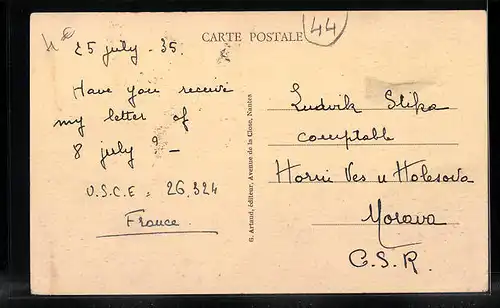 CARTE POSTALE
44
25 july - 35.
Have you receive
my letter of
8 july ? -
U.S.C.E = 26,324
France
G. Artaud, éditeur, Avenue de la Close, Nantes
Ludvik Slika
comptable
Horni Ves u Holesova
Morava
C.S.R.